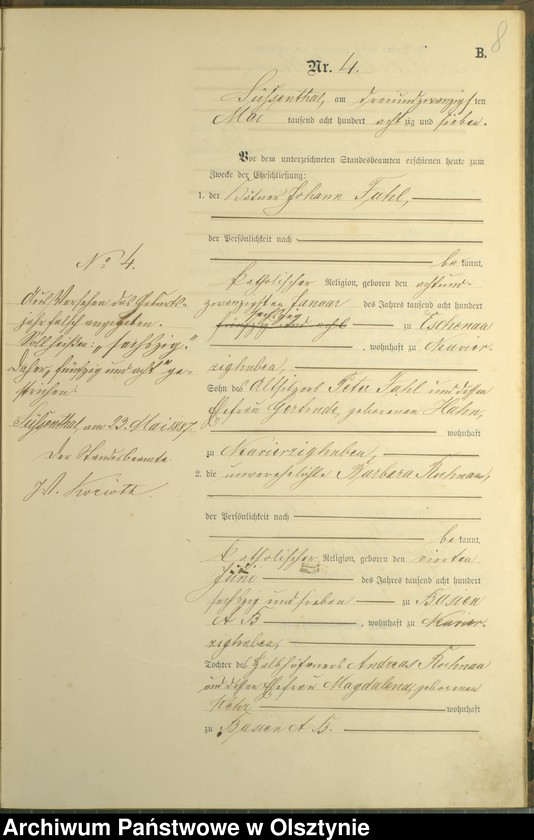 8
B.
Nr. 4.
Süssenthal, am dreiundzwanzigsten
Mai tausend acht hundert achtzig und sieben.
Vor dem unterzeichneten Standesbeamten erschienen heute zum
Zwecke der Eheschließung:
1. der Kätner Johann Fahl,
der Persönlichkeit nach
bekannt,
katholischer Religion, geboren den achtund-
zwanzigsten Januar des Jahres tausend acht hundert
sechszig
fünfzig und acht zu
, wohnhaft zu
Sohn des Altsitzers Peter Fahl und dessen
Ehefrau Gertrude, geborenen Hahn,
wohnhaft
zu
2. die unverehelichte Barbara Kochnau,
der Persönlichkeit nach
bekannt,
katholischer Religion, geboren den vierten
Juni des Jahres tausend acht hundert
sechszig und sieben zu Basien
A B , wohnhaft zu
Tochter des Halbhüfners Andreas Kochnau
und dessen Ehefrau Magdalena, geborenen
wohnhaft
zu Basien A B.
No 4.
Aus Versehen das Geburts-
jahr falsch angegeben.
Soll heißen: „sechszig".
Daher „fünfzig und acht" ge-
strichen.
Süssenthal am 23. Mai 1887.
Der Standesbeamte
Archiwum Państwowe w Olsztynie